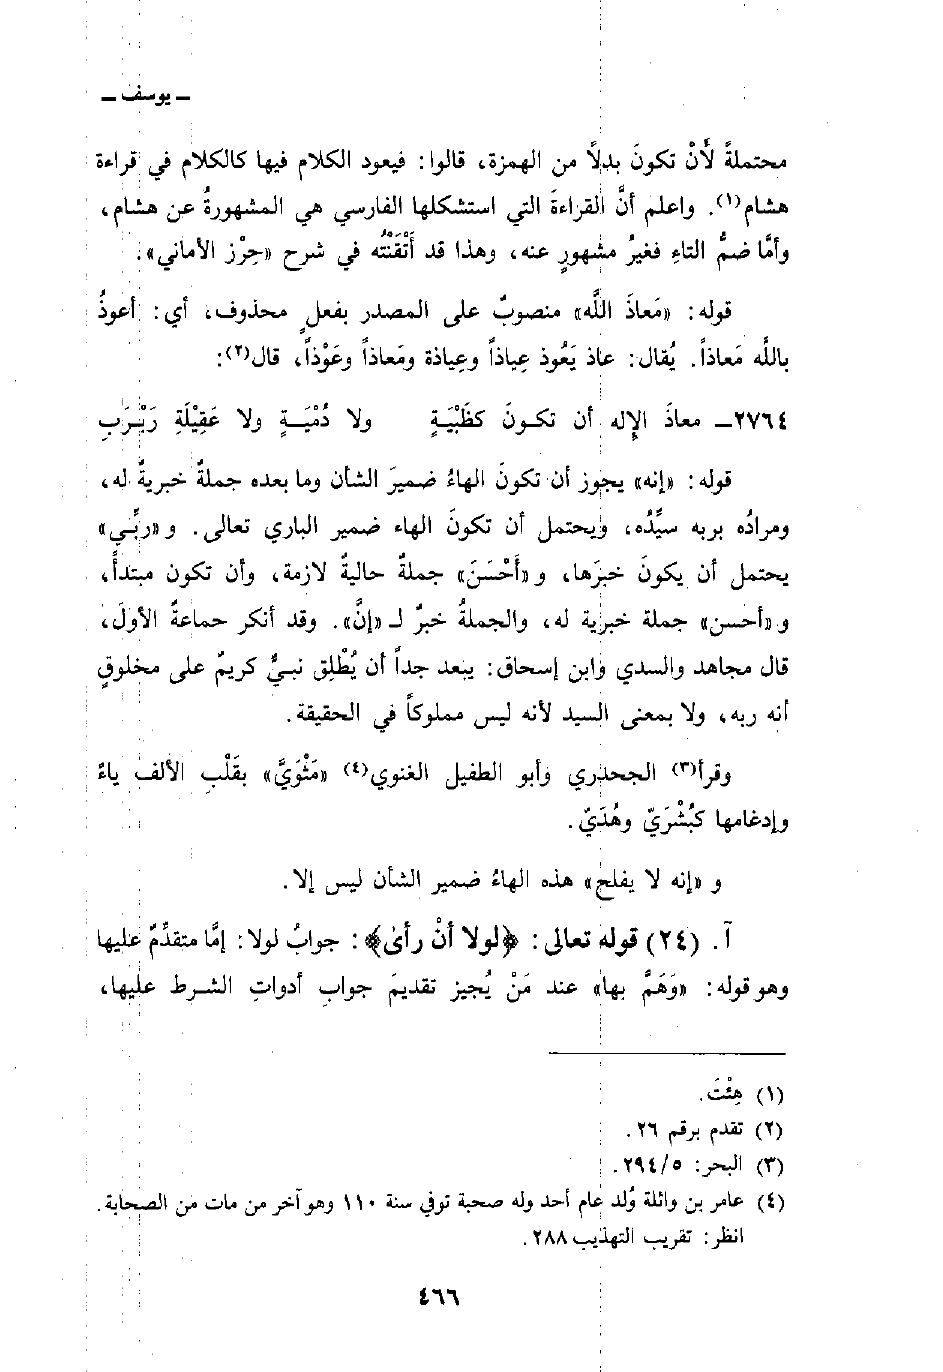 ـ يوسف ـ
محتملةً لأَنْ تكونَ بدلاً من الهمزة، قالوا: فيعود الكلام فيها كالكلام في قراءة
هشام(١). واعلم أنَّ القراءةَ التي استشكلها الفارسي هي المشهورةُ عن هشام،
وأمَّا ضمُّ التاءِ فغيرُ مشهورٍ عنه، وهذا قد أَتْقَنْتُه في شرح «حِرْز الأماني».
قوله: «مَعاذَ اللَّه» منصوبٌ على المصدر بفعلٍ محذوف، أي: أعوذُ
باللَّه مَعاذاً. يُقال: عاذ يَعُوذ عِياذاً وعِياذة ومَعاذاً وعَوْذاً، قال(٢):
٢٧٦٤ـ معاذَ الإِله أن تكـونَ كظَبْيَـةٍ ولا دُمْيَـــةٍ ولا عَقِيْلَةِ رَبْـرَبِ
قوله: «إنه» يجوز أن تكونَ الهاءُ ضميرَ الشأن وما بعده جملةٌ خبريةٌ له،
ومرادُه بربه سيِّدُه، ويحتمل أن تكونَ الهاء ضمير الباري تعالى. و «ربِّي»
يحتمل أن يكونَ خبرَها، و «أَحْسَنَ» جملةٌ حاليةٌ لازمة، وأن تكون مبتدأً،
و «أحسن» جملة خبرية له، والجملةُ خبرٌ لـ «إنَّ». وقد أنكر جماعةٌ الأولَ،
قال مجاهد والسدي وابن إسحاق: يبعد جداً أن يُطْلِق نبيٌّ كريمٌ على مخلوقٍ
أنه ربه، ولا بمعنى السيد لأنه ليس مملوكاً في الحقيقة.
وقرأ(٣) الجحدري وأبو الطفيل الغنوي(٤) «مَثْوَيَّ» بقَلْبِ الألف ياءً
وإدغامها كبُشْرَيّ وهُدَيّ.
و «إنه لا يفلح» هذه الهاءُ ضمير الشأن ليس إلا.
آ. (٢٤) قوله تعالى: ﴿لولا أنْ رأى﴾: جوابُ لولا: إمَّا متقدِّمٌ عليها
وهو قوله: «وَهَمَّ بها» عند مَنْ يُجيز تقديمَ جوابِ أدواتِ الشـرط عليها،
(١) هِئْتَ.
(٢) تقدم برقم ٢٦.
(٣) البحر: ٢٩٤/٥.
(٤) عامر بن واثلة وُلد عام أحد وله صحبة توفي سنة ١١٠ وهو آخر من مات من الصحابة.
انظر: تقريب التهذيب ٢٨٨.
٤٦٦